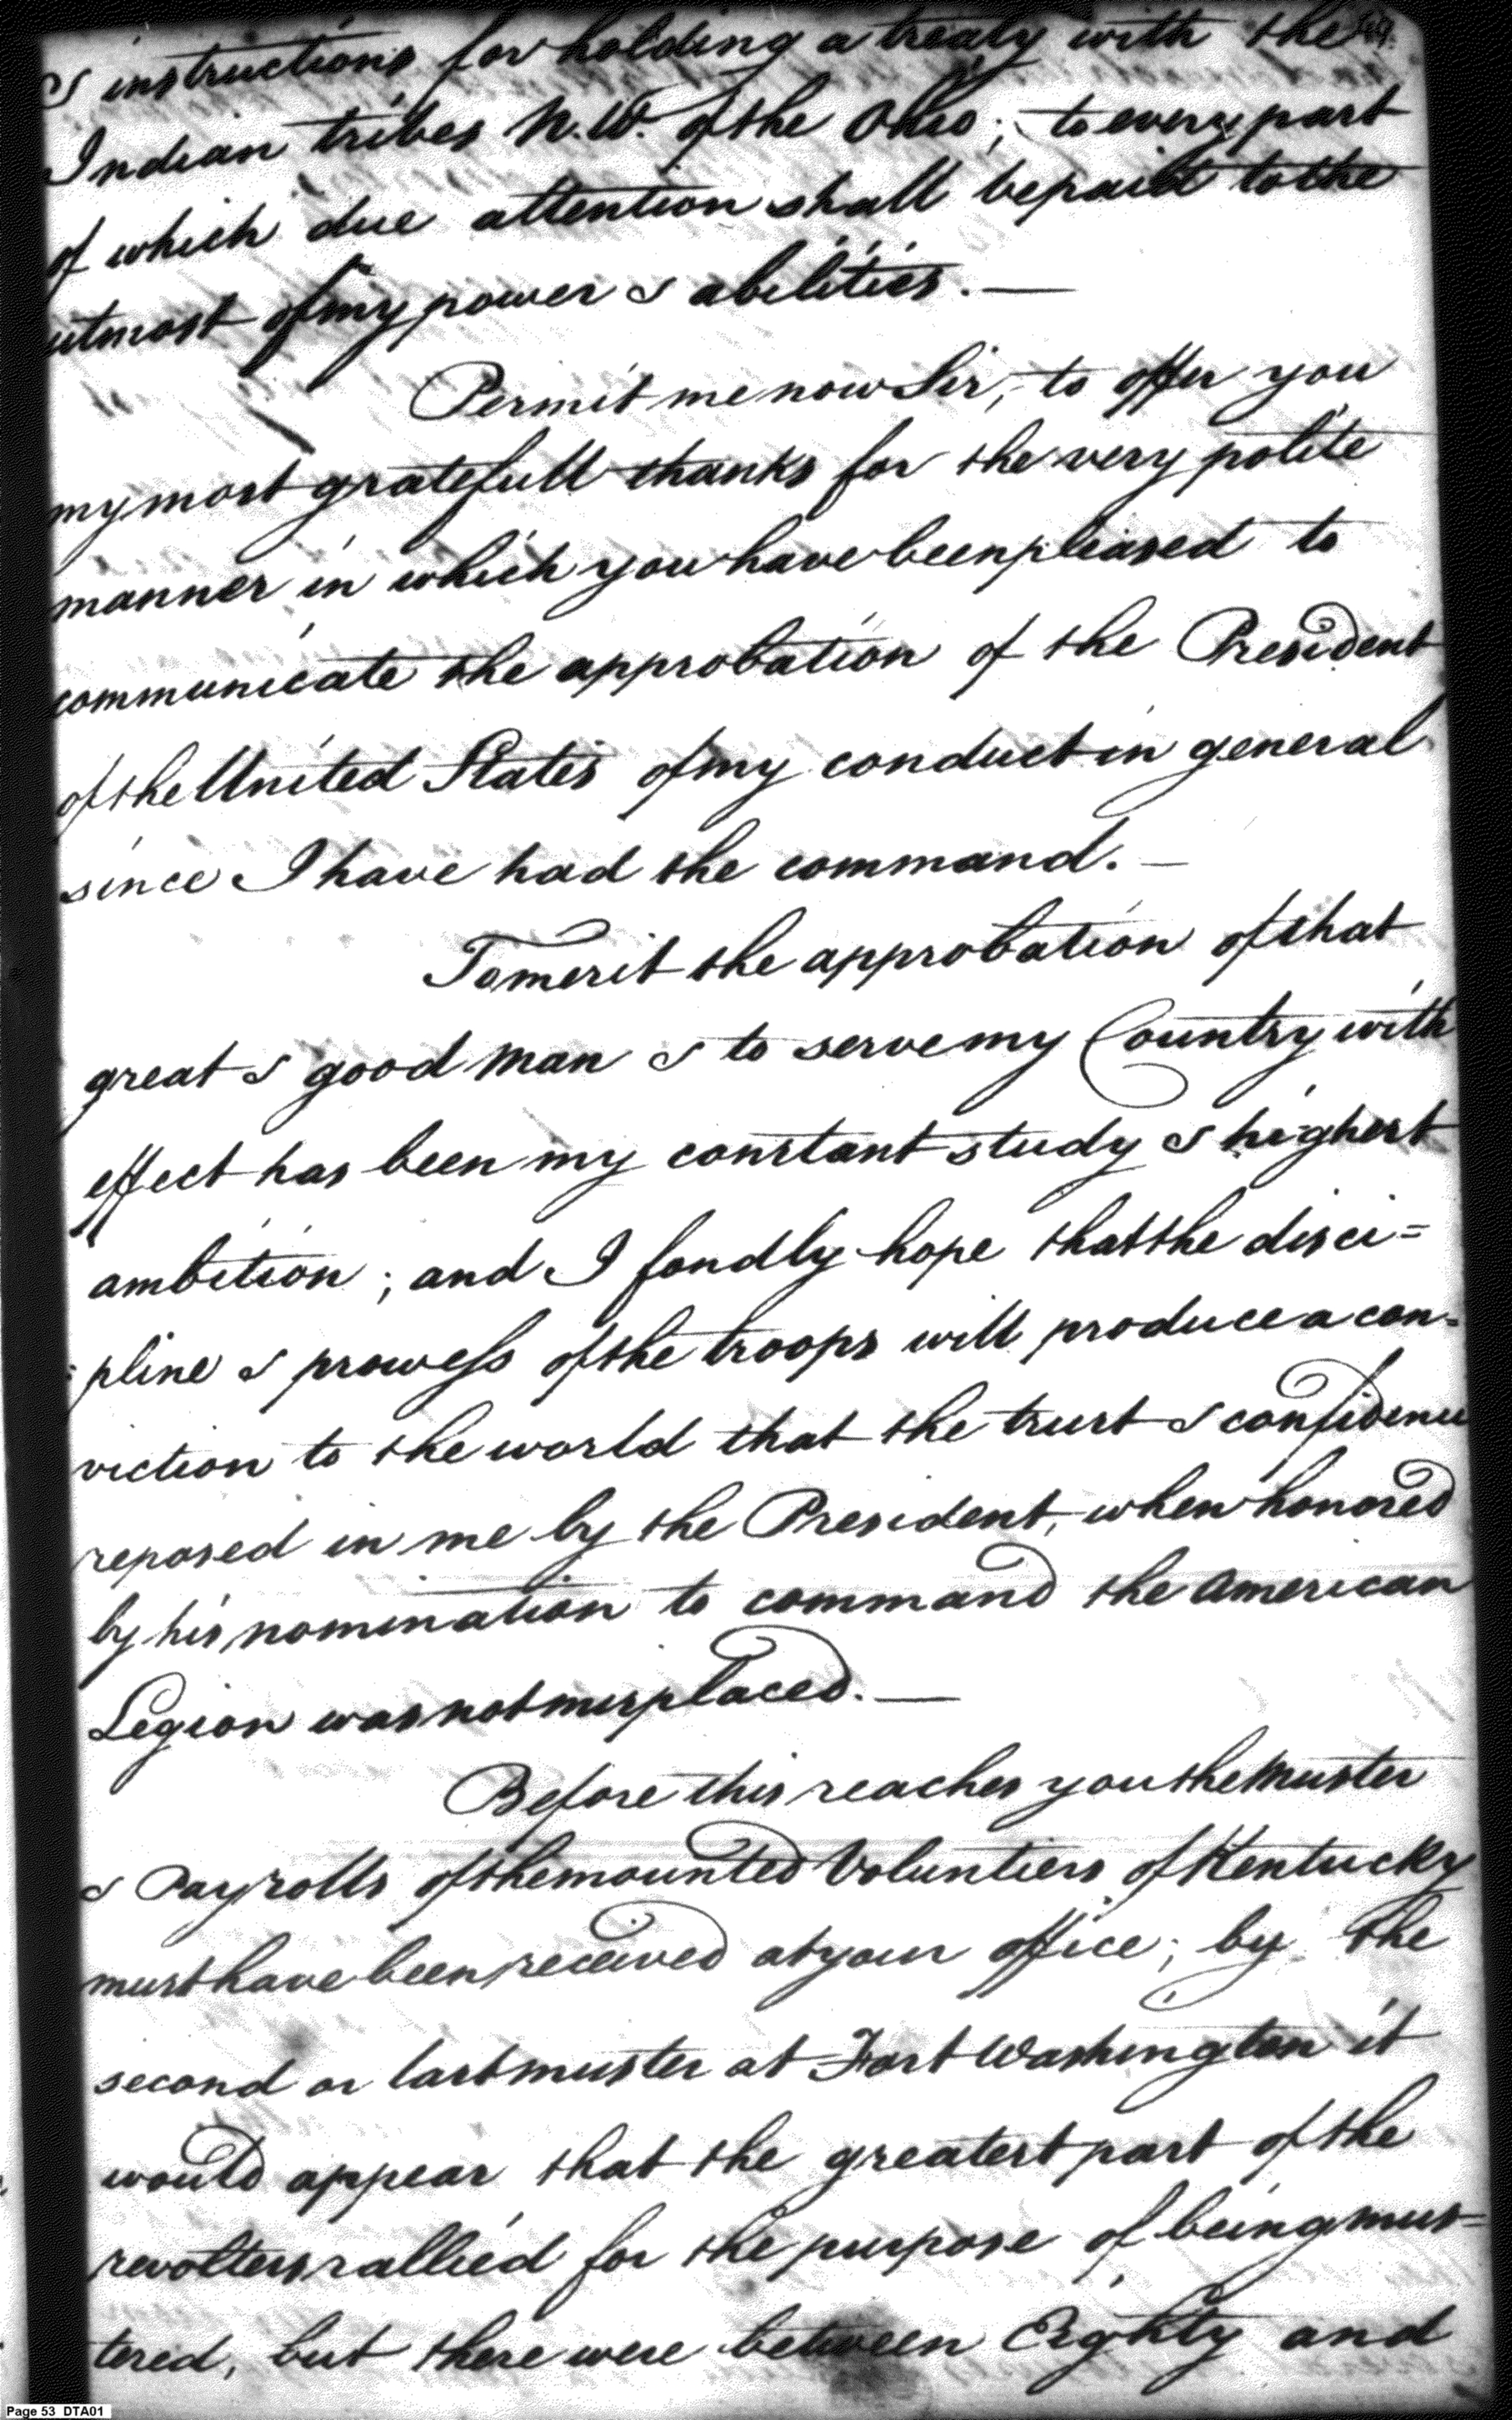 & instructions for holding a treaty with the
Indian tribes N.W. of the Ohio; to every part
of which due attention shall be paid to the
utmost of my power & abilities.—
Permit me now Sir, to offer you
my most gratefull thanks for the very polite
manner in which you have been pleased to
communicate the approbation of the President
of the United States of my conduct in general
since I have had the command.—
To merit the approbation of that
great & good man & to serve my Country with
effect has been my constant study & highest
ambition; and I fondly hope that the disci=
=pline & prowess of the troops will produce a con=
viction to the world that the trust & confidence
reposed in me by the President, when honored
by his nomination to command the American
Legion was not misplaced.—
Before this reaches you the Muster
& Pay rolls of the mounted Voluntiers of Kentucky
must have been received at your office; by the
second or last muster at Fort Washington it
would appear that the greatest part of the
revolters rallied for the purpose of being mus=
tered, but there were between Eighty and
Page 53 DTA01